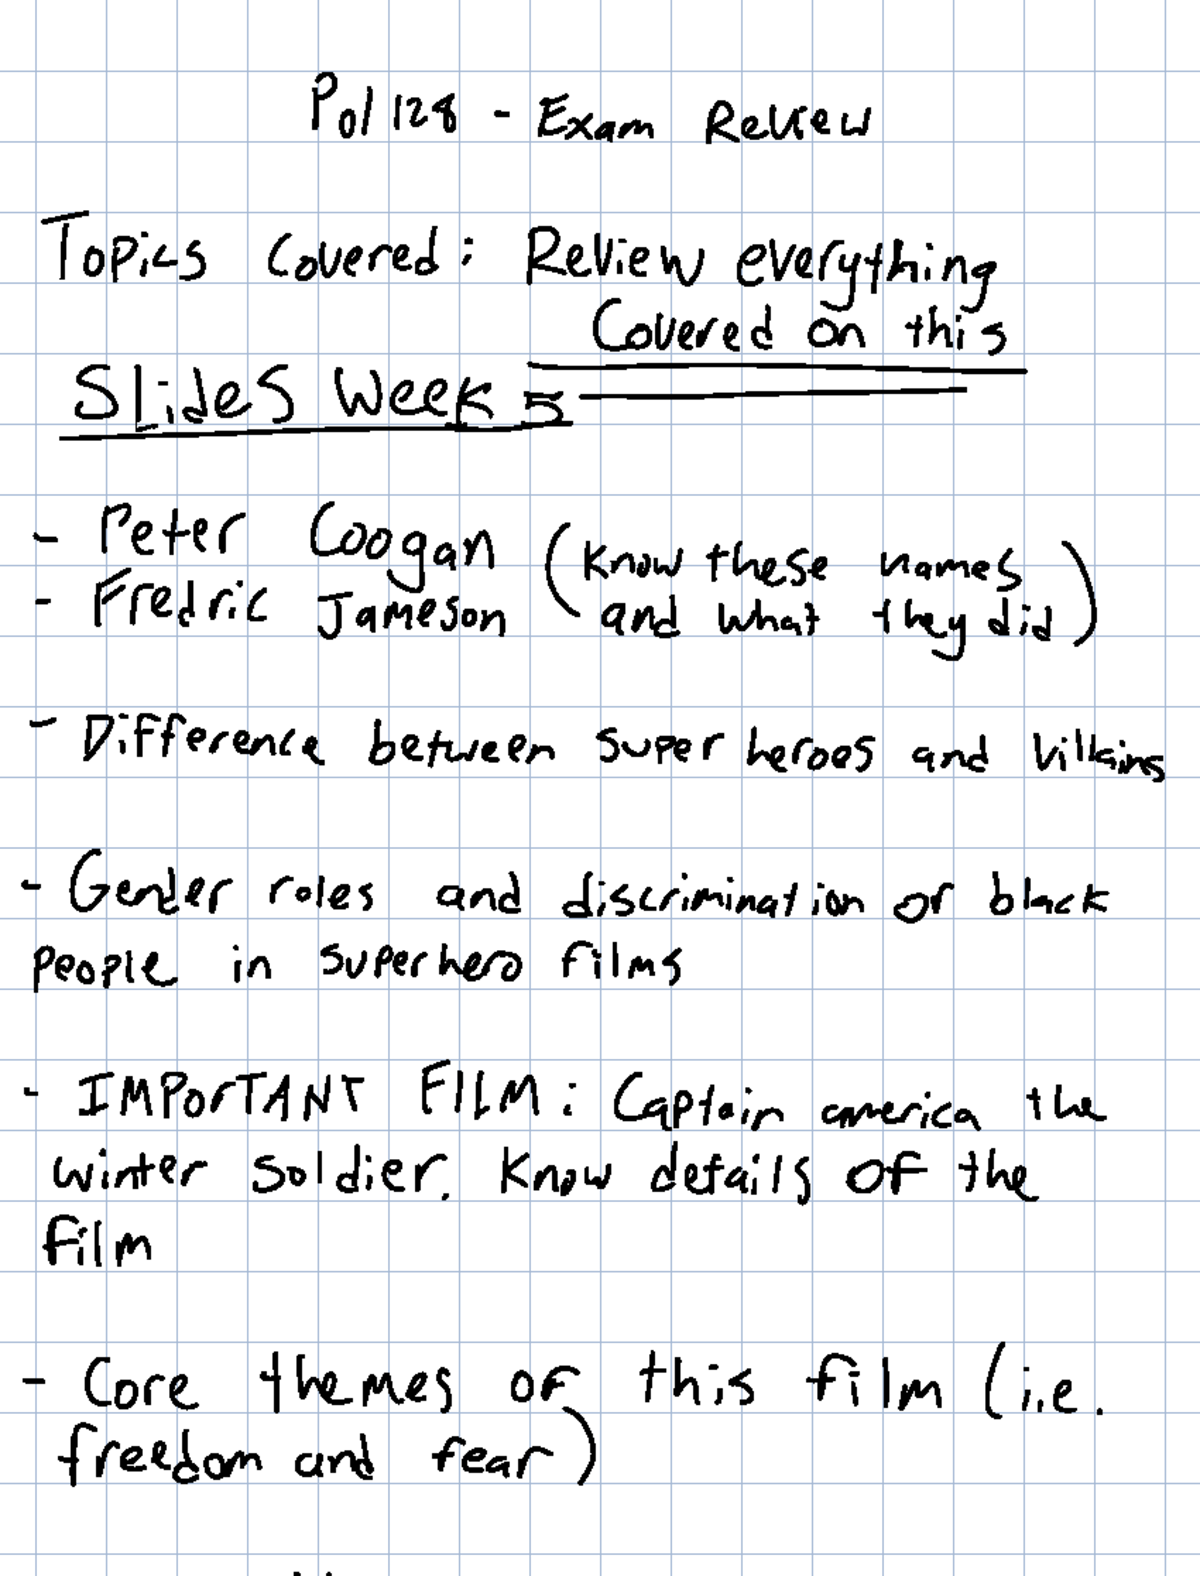 Pol 128 - Exam Review
Topics Covered: Review everything
Covered on this
Slides Week 5
- Peter Coogan (Know these names
- Fredric Jameson and what they did)
- Difference between super heroes and villains
- Gender roles and discrimination of black
people in superhero films
- IMPORTANT FILM: Captain america the
winter soldier. Know details of the
film
- Core themes of this film (i.e.
freedom and fear)